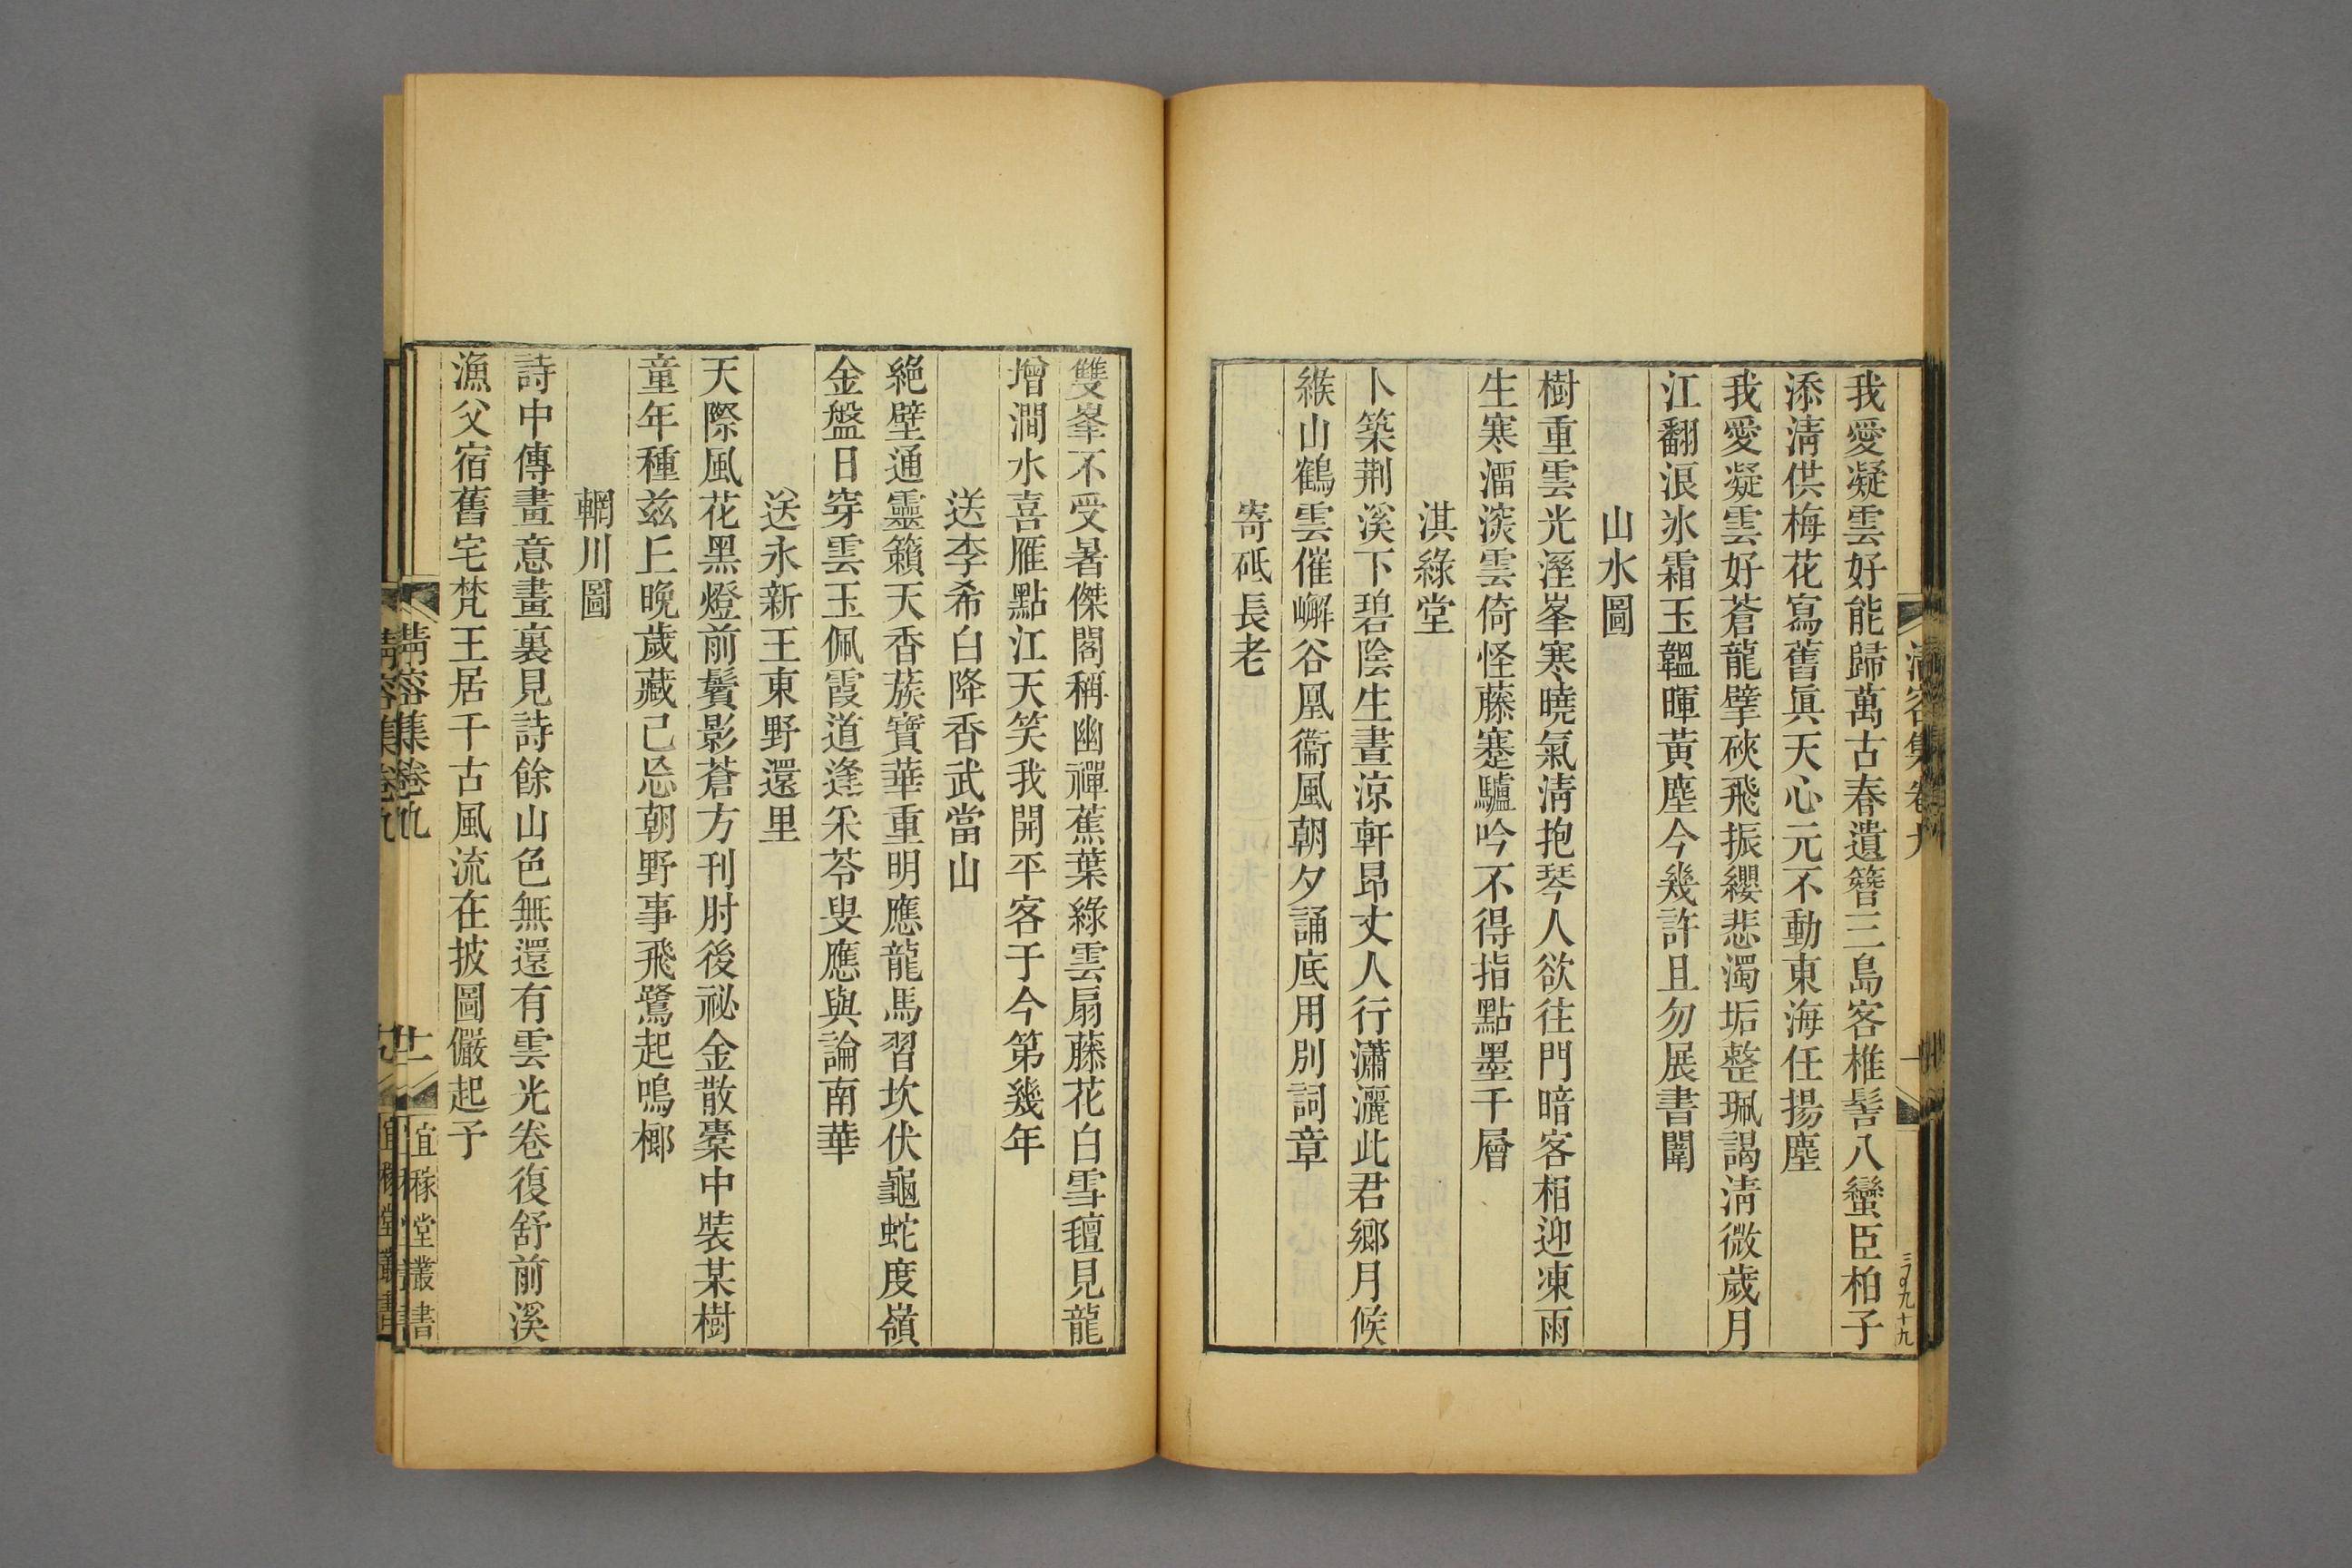 清容集卷九
我愛凝雲好能歸萬古春遺簪三島客椎髻八蠻臣柏子
添淸供梅花寫舊眞天心元不動東海任揚塵
我愛凝雲好蒼龍擘硤飛振纓悲濁垢整珮謁淸微歲月
江翻浪氷霜玉韞暉黃塵今幾許且勿展書闈
山水圖
樹重雲光溼峯寒曉氣淸抱琴人欲往門暗客相迎凍雨
生寒溜淡雲倚怪藤蹇驢吟不得指點墨千層
淇綠堂
卜築荆溪下碧陰生晝涼軒昂丈人行瀟灑此君鄉月候
緱山鶴雲催嶰谷凰衞風朝夕誦底用別詞章
寄砥長老
雙峯不受暑傑閣稱幽禪蕉葉綠雲扇藤花白雪氊見龍
增澗水喜雁點江天笑我開平客于今第幾年
送李希白降香武當山
絕壁通靈籟天香蔟寶華重明應龍馬習坎伏龜蛇度嶺
金盤日穿雲玉佩霞道逢釆苓叟應與論南華
送永新王東野還里
天際風花黑燈前鬢影蒼方刊肘後祕金散橐中裝某樹
童年種兹丘晚歲藏已忘朝野事飛鷺起鳴榔
輞川圖
詩中傳畫意畫裏見詩餘山色無還有雲光卷復舒前溪
漁父宿舊宅梵王居千古風流在披圖儼起予
清容集卷九
廿一
宜稼堂叢書